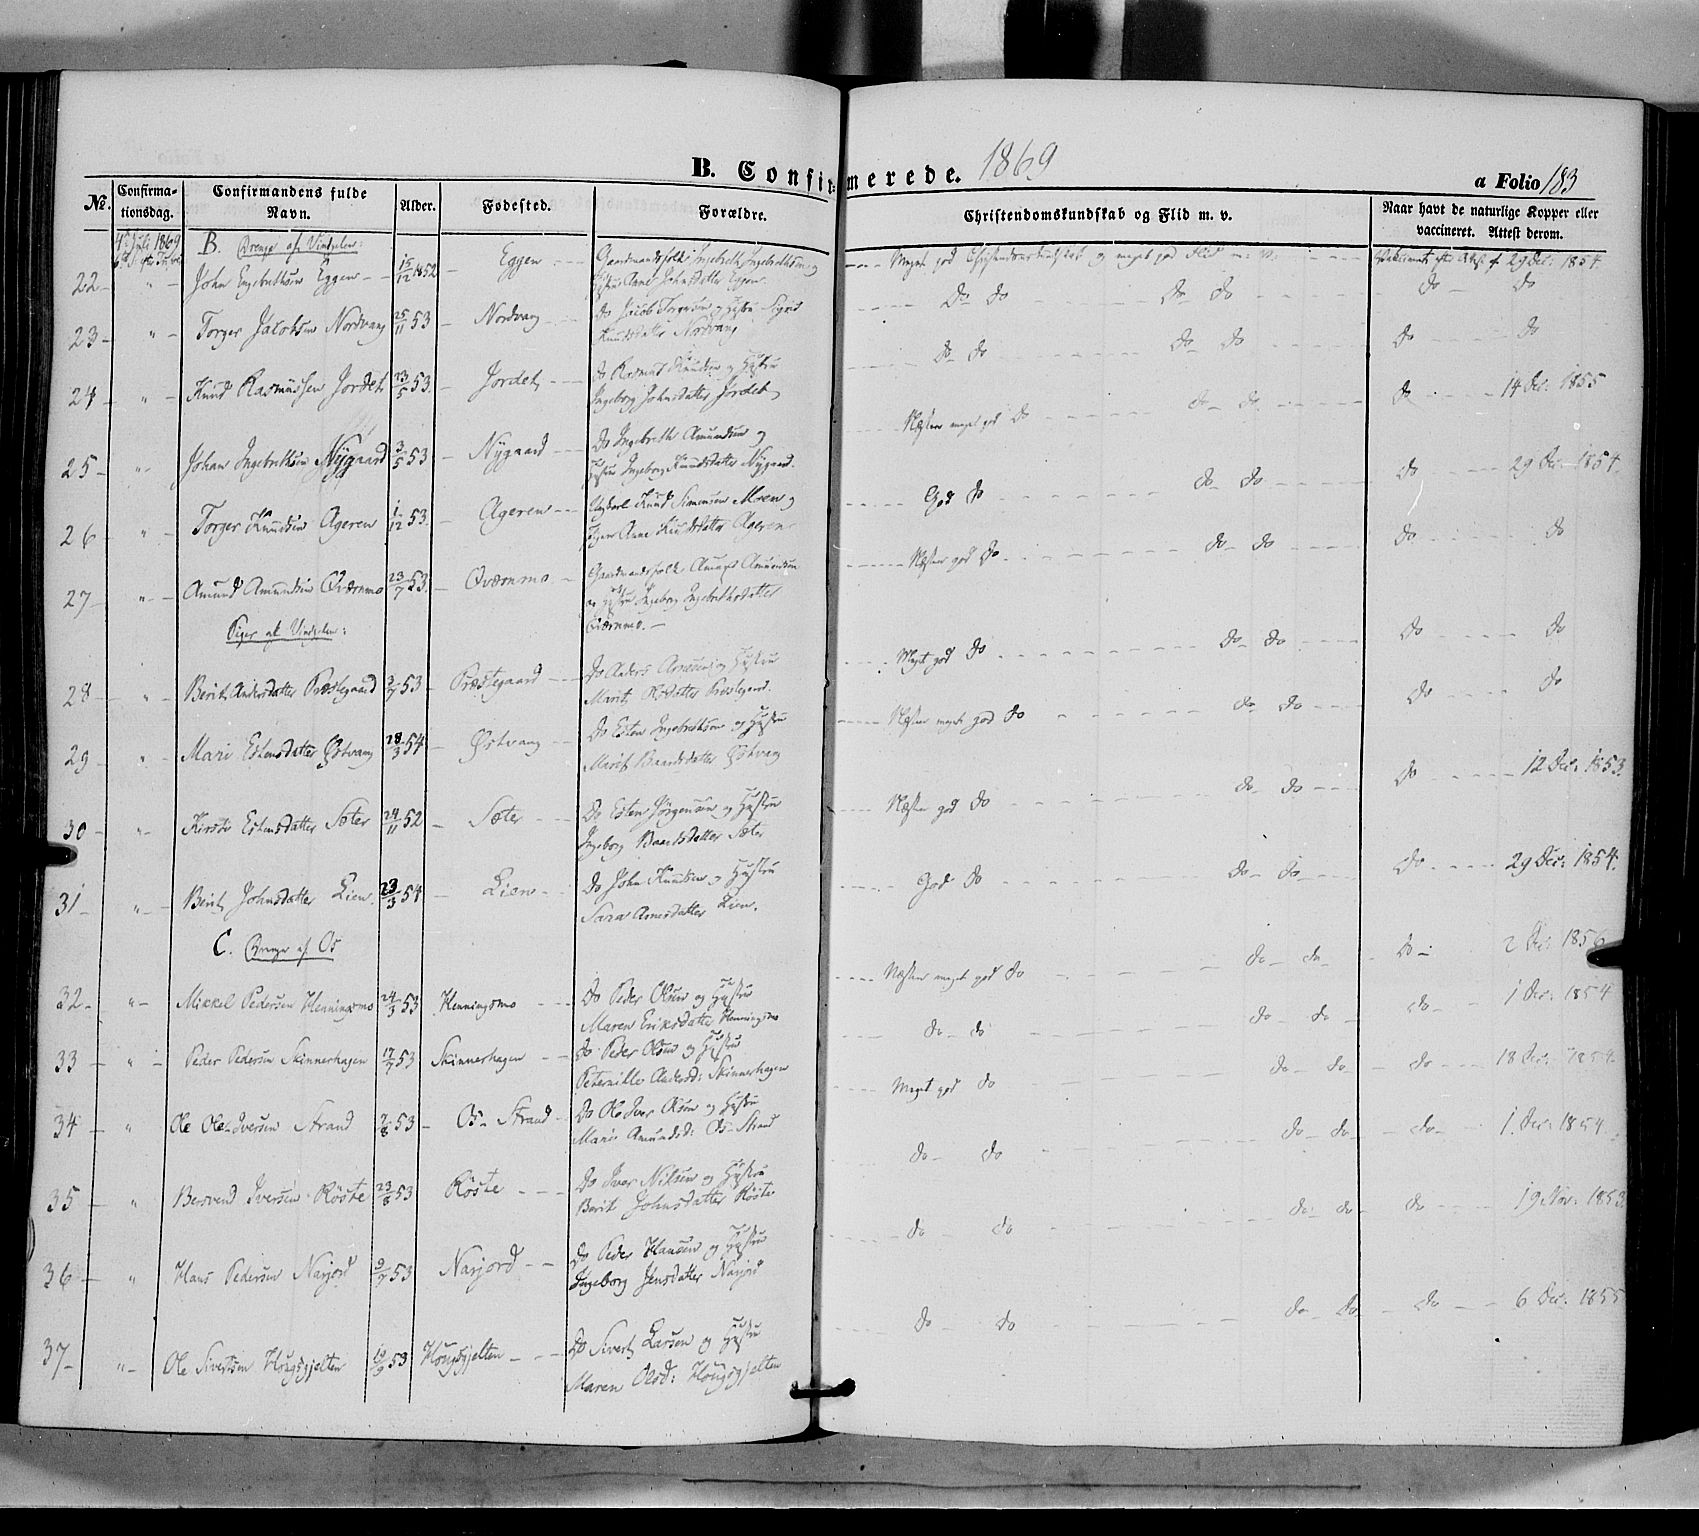 B. Confirmerede. 1869
a Folio 183
No. Confirmationsdag. Confirmandens fulde Navn. Alder. Fødested. Forældre. Christendomskundskab og Flid m. v. Naar havt de naturlige Kopper eller vaccineret. Attest derom.
4 Juli 1869
B. Drenge af Vindgelen:
22 " John Ingebrethsen Eggen 15/12 1852 Eggen Gaardmandsfolk Ingebreth Ingebrethsen og
Hustru Anne Johnsdatter Eggen. Meget god Christendomskundskab og meget god Flid m: v: 29 Dec: 1854
23 " Torger Jacobsen Nordvang 25/11 53 Nordvang Do Jacob Torgersen og Hustru Sigrid
Knudsdatter Nordvang Do Do Do Do Do Do
24 " Knud Rasmussen Jordet 23/5 53 Jordet Do Rasmus Knudsen og Hustru
Ingeborg Johnsdatter Jordet Do Do Do Do Do Do
25 " Johan Ingebrethsen Nygaard 3/5 53 Nygaard Do Ingebreth Amundsen og
Hustru Ingeborg Knudsdatter Nygaard. Næsten meget god Do Do Do Do 14 Dec: 1855
26 " Torger Knudsen Ageren 1/12 53 Ageren Ungkarl Knud Simensen Moen og
Pigen Anne Knudsdatter Ageren God Do Do Do Do 29 Dec: 1854.
27 " Amund Amundsen Qværnmo 23/7 53 Qværnmo Gaardmandsfolk Amund Amundsen
og Hustru Ingeborg Ingebrethsdatter
Qværnmo. Næsten god Do Do Do Do Do
Piger af Vindgelen:
28 " Berit Andersdatter Præstegaard 2/7 53 Præstegaard Do Anders Arnesen og Hustru
Marit Præstegaard. Meget god Do Do Do Do Do
29 " Mari Estensdatter Østvang 28/3 54 Østvang Do Esten Ingebrethsen og Hustru
Marit Baardsdatter Østvang Næsten meget god Do Do Do Do Do
30 " Kirsti Estensdatter Sæter 24/11 52 Sæter Do Esten Jørgensen og Hustru
Ingeborg Baardsdatter Sæter Næsten god Do Do Do Do 12 Dec: 1853.
31 " Berit Johnsdatter Lien. 23/3 54 Lien Do John Knudsen og Hustru
Sara Arnesdatter Lien. God Do Do Do Do 29 Dec: 1854.
C. Drenge af Os
32 " Mikkel Pedersen Henningsmo 24/3 53 Henningsmo Do Peder Olsen og Hustru
Maren Eriksdatter Henningsmo Næsten meget god Do Do Do Do 2 Dec: 1856
33 " Peder Pedersen Skinnerhagen 17/7 53 Skinnerhagen Do Peder Olsen og Hustru
Peternille Andersd: Skinnerhagen Do Do Do Do Do 1 Dec: 1854
34 " Ole Ole-Iversen Strand 2/8 53 Os-Strand Do Ole Iver Olsen og Hustru
Mari Amundsd: Os-Strand Meget god Do Do Do Do 18 Dec: 1854.
35 " Bersvend Iversen Röste 23/8 53 Röste Do Iver Nilsen og Hustru
Berit Johnsdatter Röste Do Do Do Do Do 1 Dec: 1854.
36 " Hans Pedersen Narjord 9/7 53 Narjord Do Peder Hansen og Hustru
Ingeborg Jensdatter Narjord Do Do Do Do Do 19 Nov: 1853.
37 " Ole Sivertsen Hougsgjelten 19/9 53 Hougsgjelten Do Sivert Larsen og Hustru
Maren Olsd: Hougsgjelten Do Do Do Do Do 6 Dec: 1855